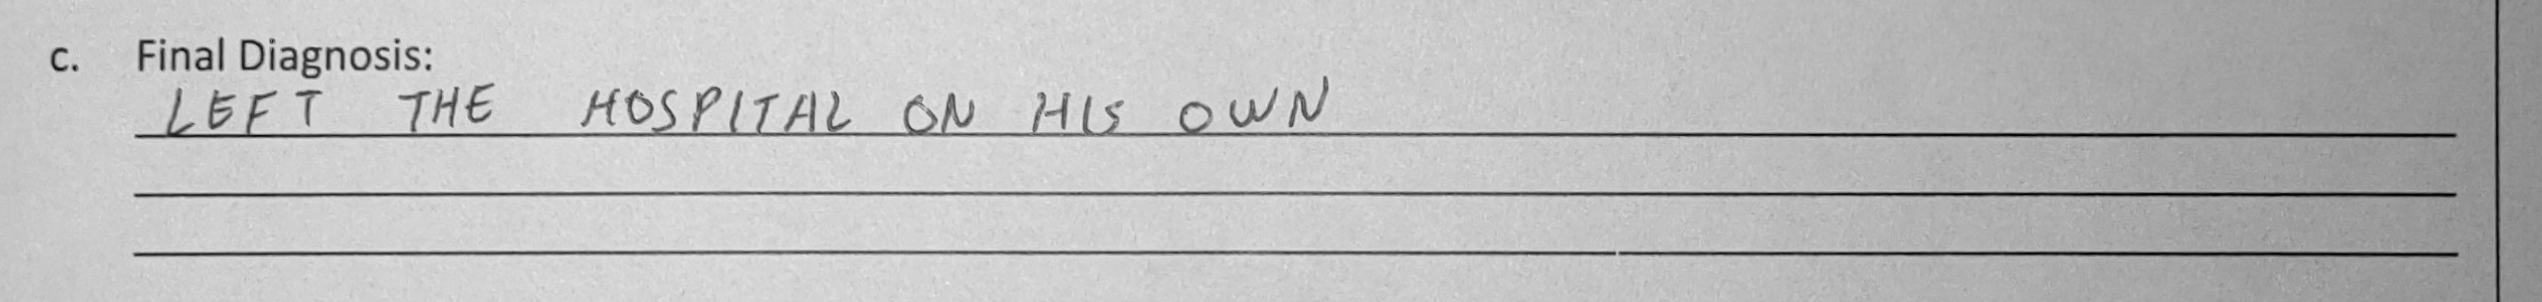 c. Final Diagnosis:
LEFT THE HOSPITAL ON HIS OWN